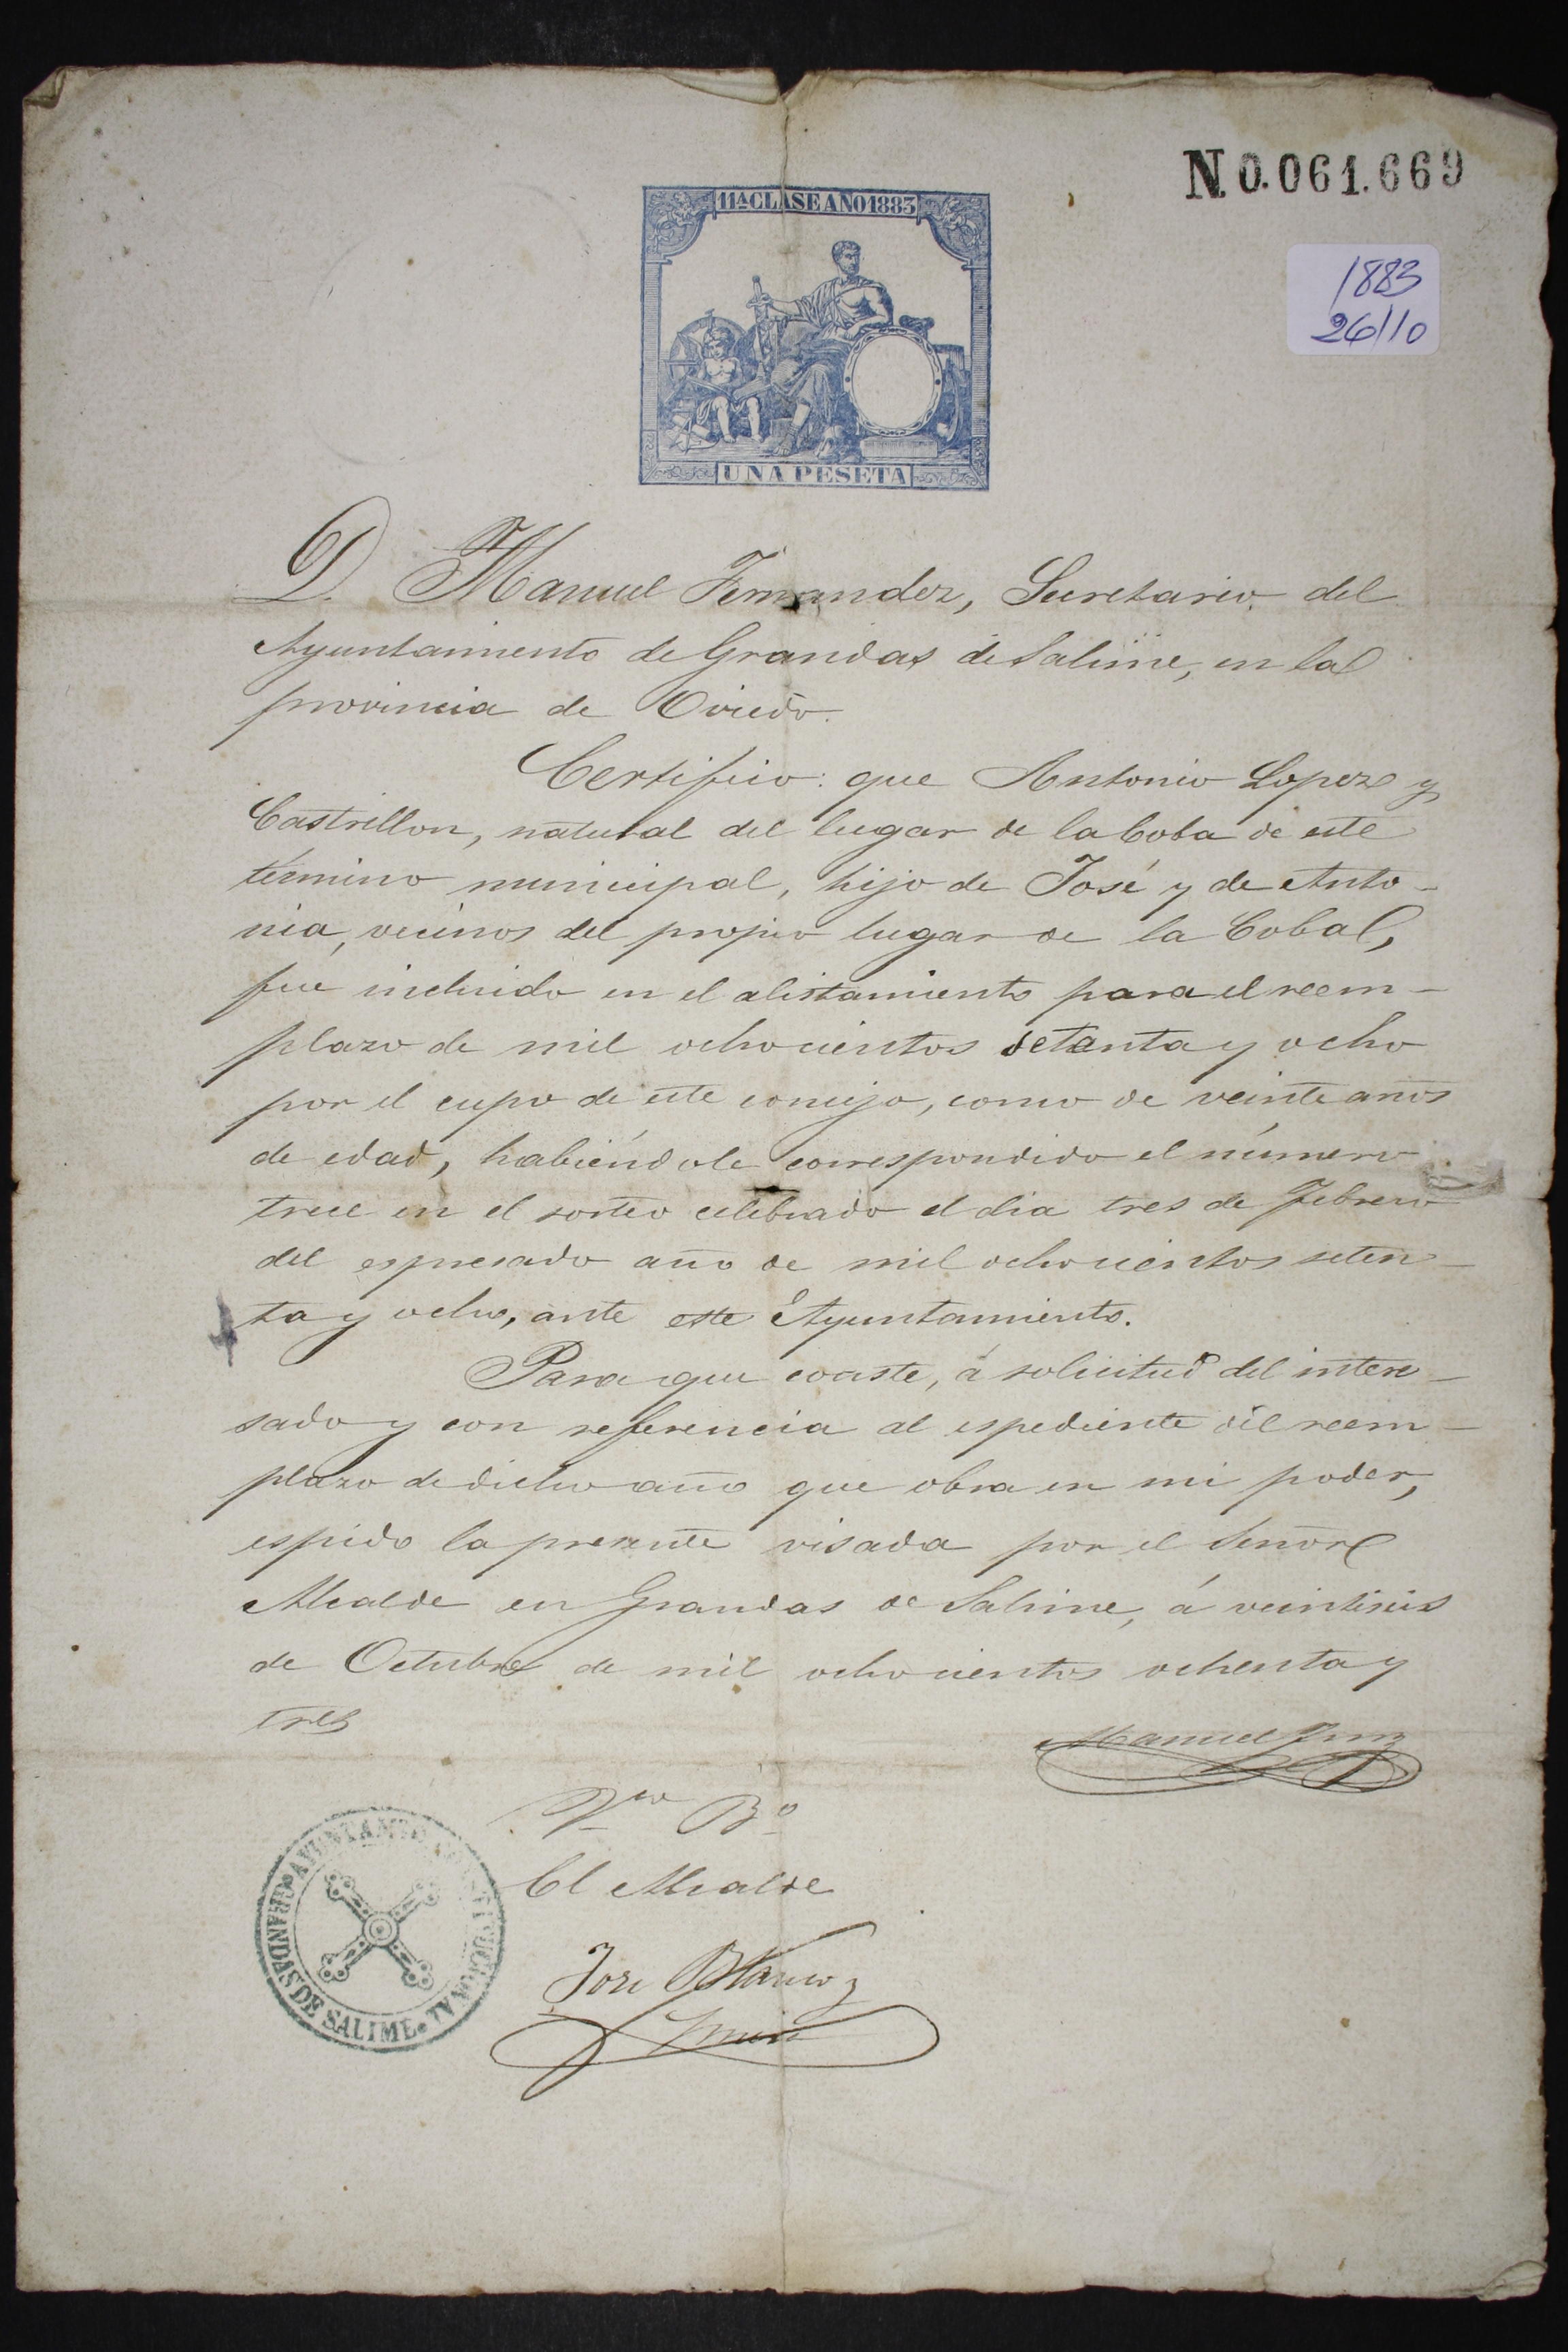 N. 0.061.669
11ª CLASE AÑO 1883
1883
26/10
UNA PESETA
D. Manuel Fernandez, Secretario del
Ayuntamiento de Grandas de Salime, en la
provincia de Oviedo.
Certifico: que Antonio Lopez y
Castrillon, natural del lugar de la Coba de este
término municipal, hijo de José y de Anto-
nia, vecinos del propio lugar de la Coba,
fué incluido en el alistamiento para el reem-
plazo de mil ochocientos setenta y ocho
por el cupo de este concejo, como de veinte años
de edad, habiéndole correspondido el número
trece en el sorteo celebrado el dia tres de Febrero
del espresado año de mil ochocientos seten-
ta y ocho, ante este Ayuntamiento.
Para que conste, á solicitud del intere-
sado y con referencia al espediente del reem-
plazo de dicho año que obra en mi poder,
espido la presente visada por el Señor
Alcalde en Grandas de Salime, á veintiseis
de Octubre de mil ochocientos ochenta y
tres
Manuel Frnz
Vto Bº
El Alcalde
José Blanco y
AYUNTAMTO CONSTITUCIONAL
GRANDAS DE SALIME